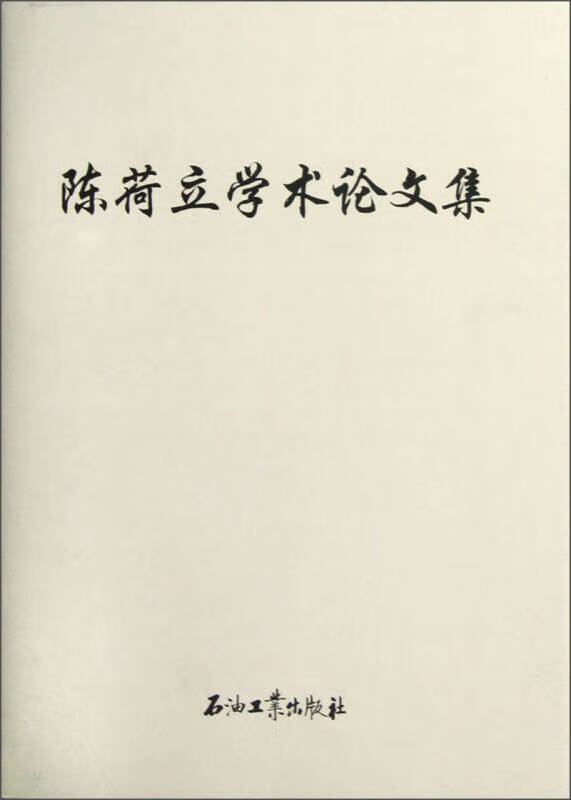 陈荷立学术论文集
石油工業出版社